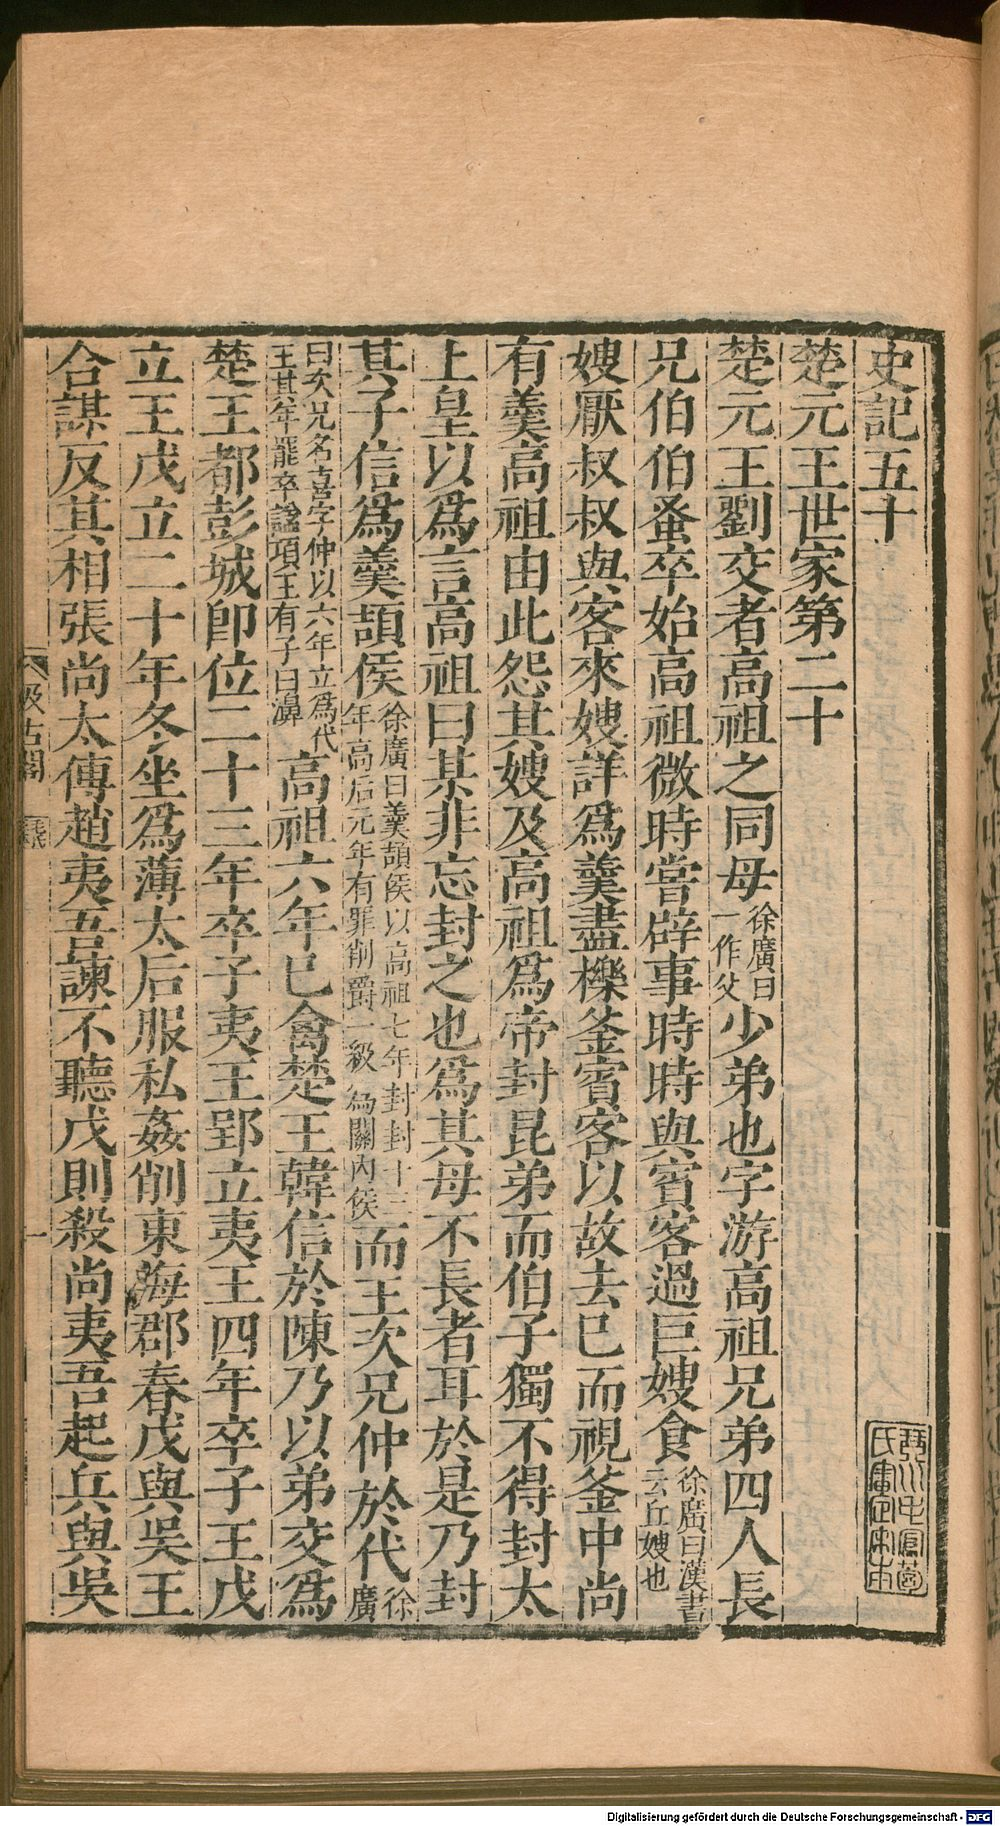 史記五十
楚元王世家第二十
楚元王劉交者高祖之同母徐廣曰一作父少弟也字游高祖兄弟四人長
兄伯伯蚤卒始高祖微時嘗辟事時時與賓客過巨嫂食徐廣曰漢書云丘嫂也
嫂厭叔叔與客來嫂詳爲羹盡櫟釜賓客以故去已而視釜中尚
有羹高祖由此怨其嫂及高祖爲帝封昆弟而伯子獨不得封太
上皇以爲言高祖曰某非忘封之也爲其母不長者耳於是乃封
其子信爲羹頡侯徐廣曰羹頡侯以高祖七年封封十三年高后元年有罪削爵一級爲關內侯而王次兄仲於代徐廣
曰次兄名喜字仲以六年立爲代王其年罷卒諡頃王有子曰濞高祖六年已禽楚王韓信於陳乃以弟交爲
楚王都彭城卽位二十三年卒子夷王郢立夷王四年卒子王戊
立王戊立二十年冬坐爲薄太后服私姦削東海郡春戊與吳王
合謀反其相張尚太傅趙夷吾諫不聽戊則殺尚夷吾起兵與吳
汲古閣
一
琴川毛鳳苞氏審定宋本
Digitalisierung gefördert durch die Deutsche Forschungsgemeinschaft - DFG